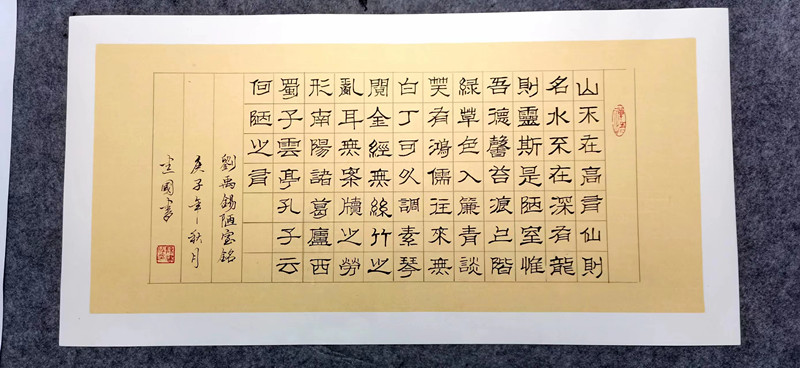 山不在高有仙則
名水不在深有龍
則靈斯是陋室惟
吾德馨苔痕上階
綠草色入簾青談
笑有鴻儒往來無
白丁可以調素琴
閱金經無絲竹之
亂耳無案牘之勞
形南陽諸葛廬西
蜀子雲亭孔子云
何陋之有
劉禹錫陋室銘
庚子年秋月
國書